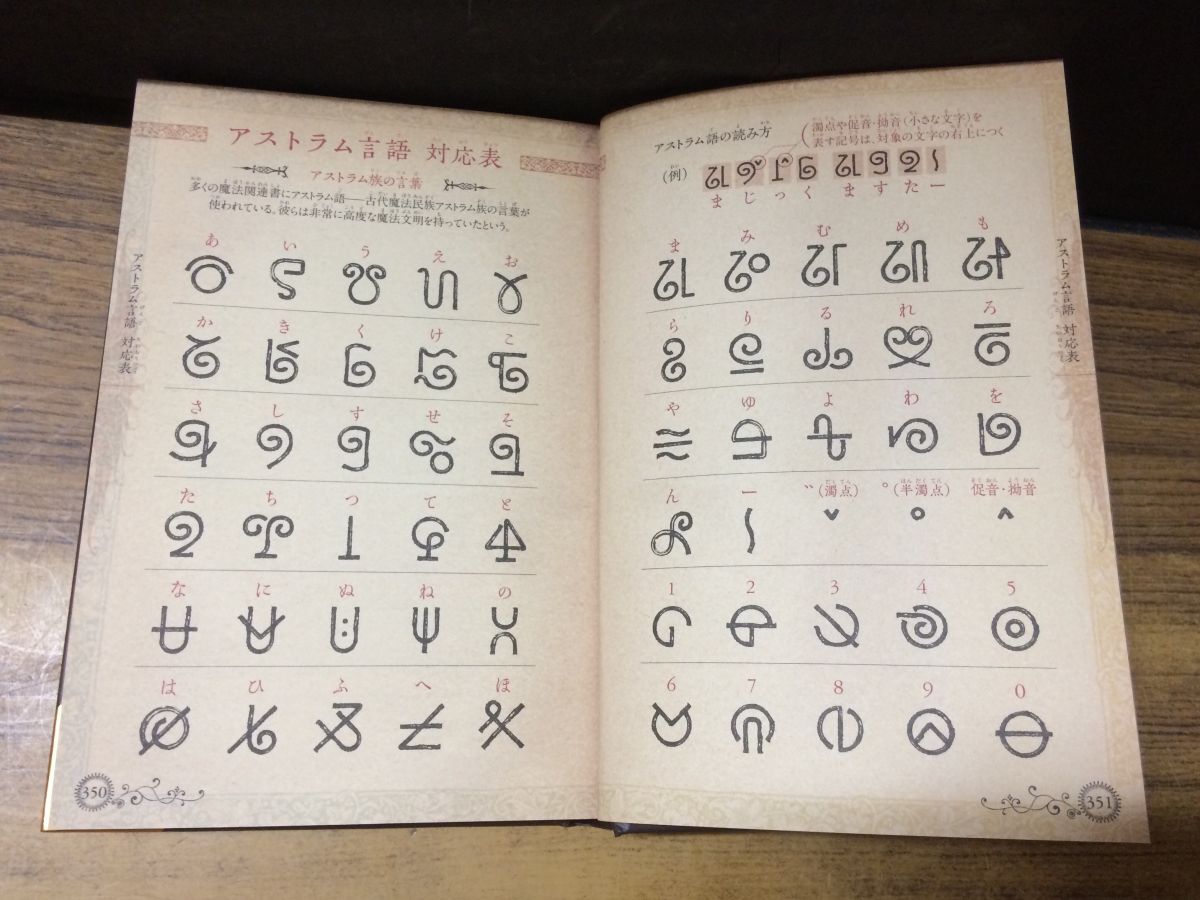 アストラム言語 対応表
アストラム族の言葉
多くの魔法関連書にアストラム語――古代魔法民族アストラム族の言葉が
使われている。彼らは非常に高度な魔法文明を持っていたという。
あ い う え お
か き く け こ
さ し す せ そ
た ち つ て と
な に ぬ ね の
は ひ ふ へ ほ
アストラム言語 対応表
350
アストラム語の読み方
濁点や促音・拗音(小さな文字)を
表す記号は、対象の文字の右上につく
(例)
まじっくますたー
ま み む め も
ら り る れ ろ
や ゆ よ わ を
ん ー ゛(濁点) ゜(半濁点) 促音・拗音
1 2 3 4 5
6 7 8 9 0
アストラム言語 対応表
351